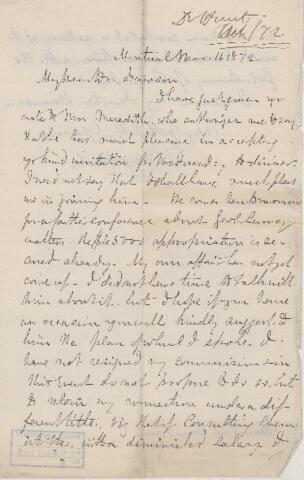 Dr Hunt
Ack / 72
Montreal Mar 11 1872
My Dear Dr Dawson
I have just given yr
note to Mr Meredith, who authorizes me to say
that he has much pleasure in accepting
yr kind invitation for Wednesday to dinner
I need not say that I shall have much pleas
ure in joining him. He comes
for a further conference about
matters. The $45000 appropriation is se
cured already. My own affair has not yet
come up. I did not have time to talk with
him about it. but I hope if you have
an occasion you will kindly suggest to
him the plan of which I spoke. I
have not resigned my commission in
this Dept do not propose to do so, but
to retain my connection under a dif
ferent title, viz that of Consulting Chem
ist with a diminished salary &